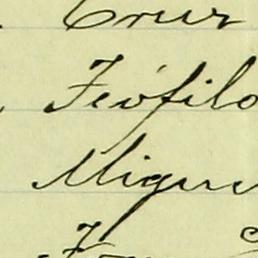 Cruz
Teófilo
Migue